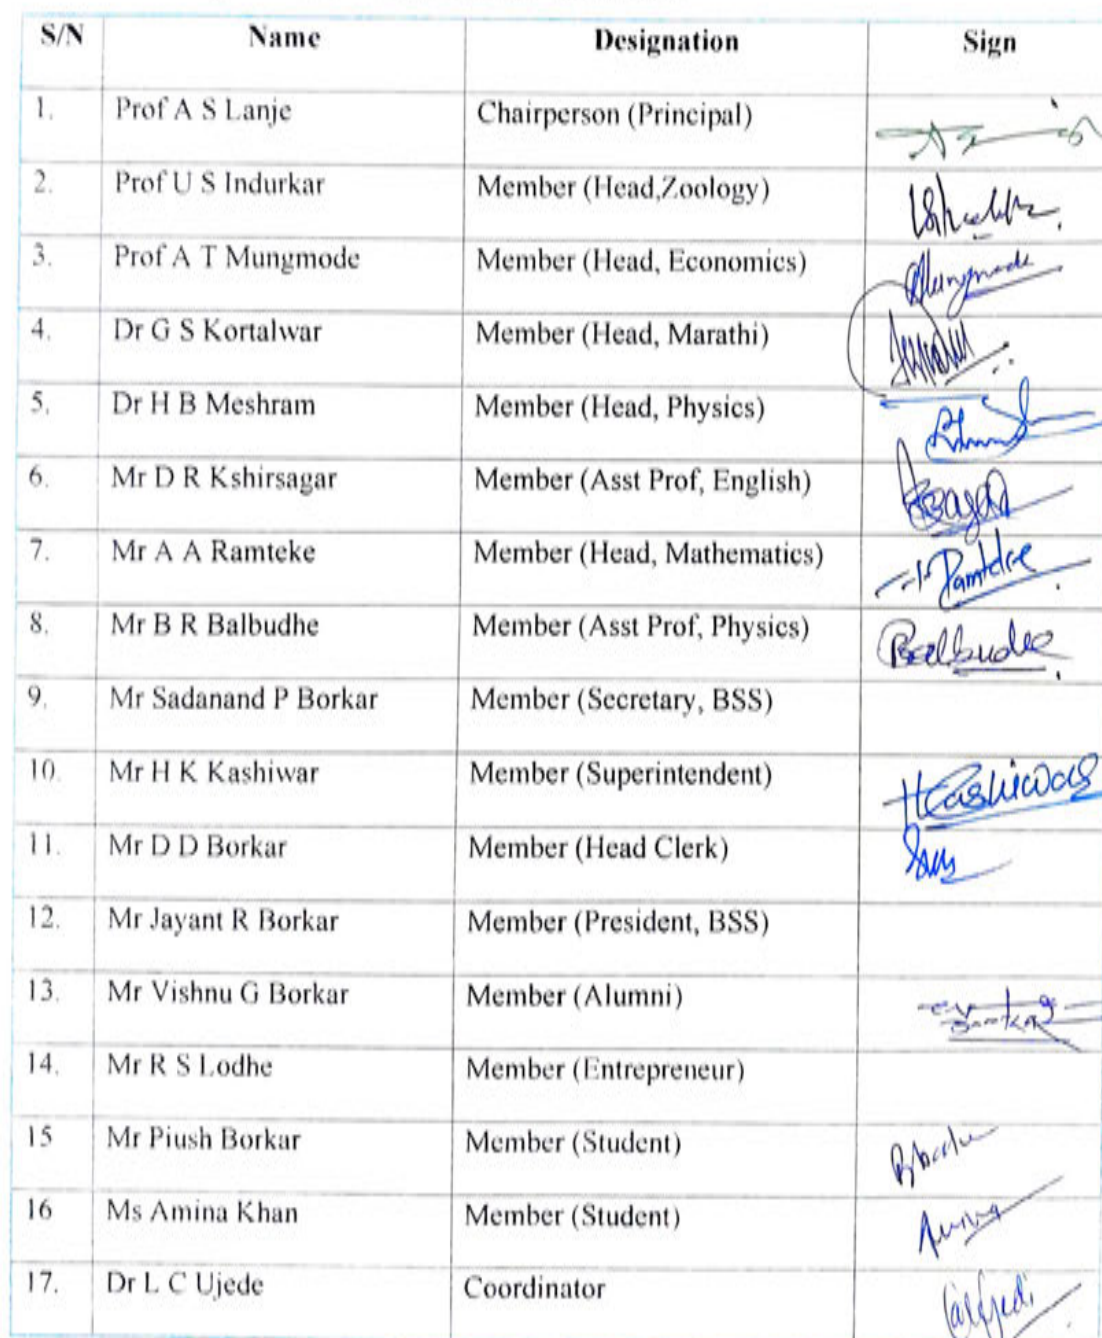 S/N Name Designation Sign
1. Prof A S Lanje Chairperson (Principal)
2. Prof U S Indurkar Member (Head,Zoology)
3. Prof A T Mungmode Member (Head, Economics) Mungmode
4. Dr G S Kortalwar Member (Head, Marathi)
5. Dr H B Meshram Member (Head, Physics)
6. Mr D R Kshirsagar Member (Asst Prof, English)
7. Mr A A Ramteke Member (Head, Mathematics) Ramteke
8. Mr B R Balbudhe Member (Asst Prof, Physics) Balbudhe
9. Mr Sadanand P Borkar Member (Secretary, BSS)
10. Mr H K Kashiwar Member (Superintendent) HKashiwar
11. Mr D D Borkar Member (Head Clerk)
12. Mr Jayant R Borkar Member (President, BSS)
13. Mr Vishnu G Borkar Member (Alumni)
14. Mr R S Lodhe Member (Entrepreneur)
15 Mr Piush Borkar Member (Student)
16 Ms Amina Khan Member (Student) Amina
17. Dr L C Ujede Coordinator